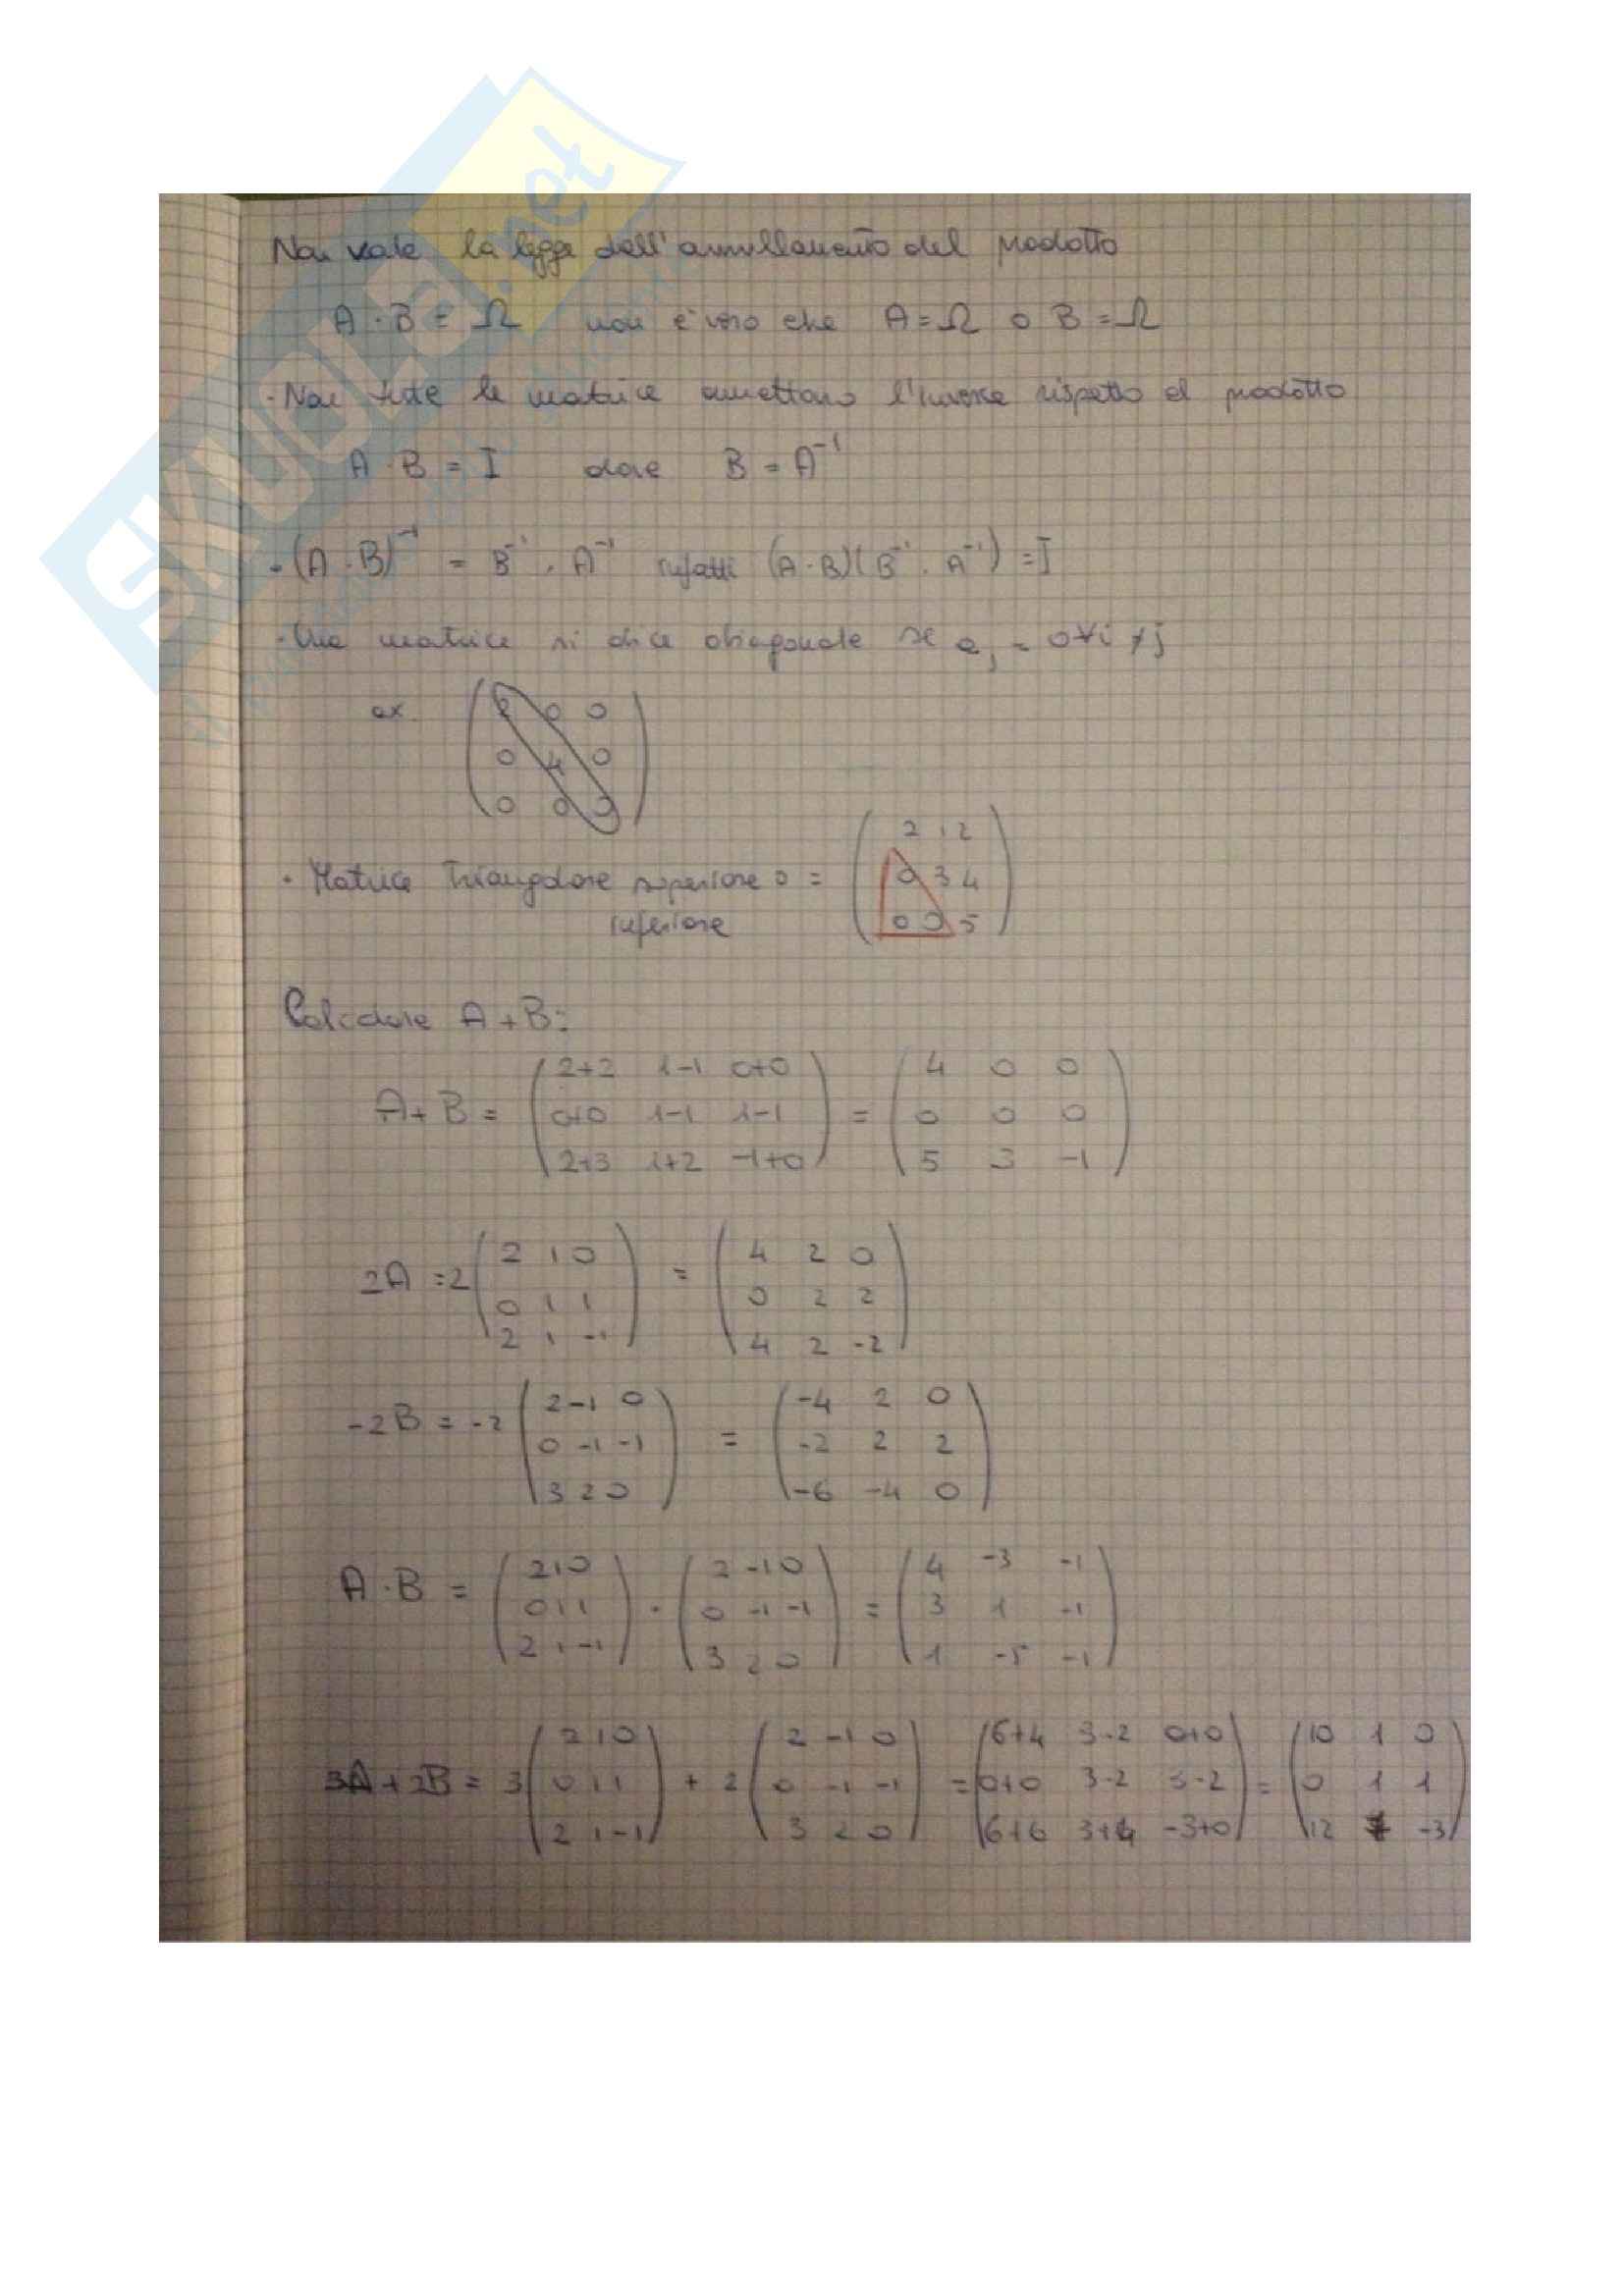 SKUOLa.net
Non vale la legge dell'annullamento del prodotto
A · B = Ω non è vero che A = Ω o B = Ω
· Non tutte le matrice amettano l'inversa rispetto al prodotto
A · B = I dove B = A⁻¹
· (A · B)⁻¹ = B⁻¹ · A⁻¹ infatti (A · B)(B⁻¹ · A⁻¹) = I
· Una matrice si dice diagonale se aⱼ = 0 ∀ i ≠ j
ex.
2 0 0
0 4 0
0 0 0
· Matrice Triangolare superiore o =
inferiore
2 1 2
0 3 4
0 0 5
Calcolare A + B:
A + B =
2+2 1-1 0+0
0+0 1-1 1-1
2+3 1+2 -1+0
=
4 0 0
0 0 0
5 3 -1
2A = 2
2 1 0
0 1 1
2 1 -1
=
4 2 0
0 2 2
4 2 -2
-2B = -2
2 -1 0
0 -1 -1
3 2 0
=
-4 2 0
-2 2 2
-6 -4 0
A · B =
2 1 0
0 1 1
2 1 -1
·
2 -1 0
0 -1 -1
3 2 0
=
4 -3 -1
3 1 -1
1 -5 -1
3A + 2B = 3
2 1 0
0 1 1
2 1 -1
+ 2
2 -1 0
0 -1 -1
3 2 0
=
6+4 3-2 0+0
0+0 3-2 3-2
6+6 3+4 -3+0
=
10 1 0
0 1 1
12 7 -3